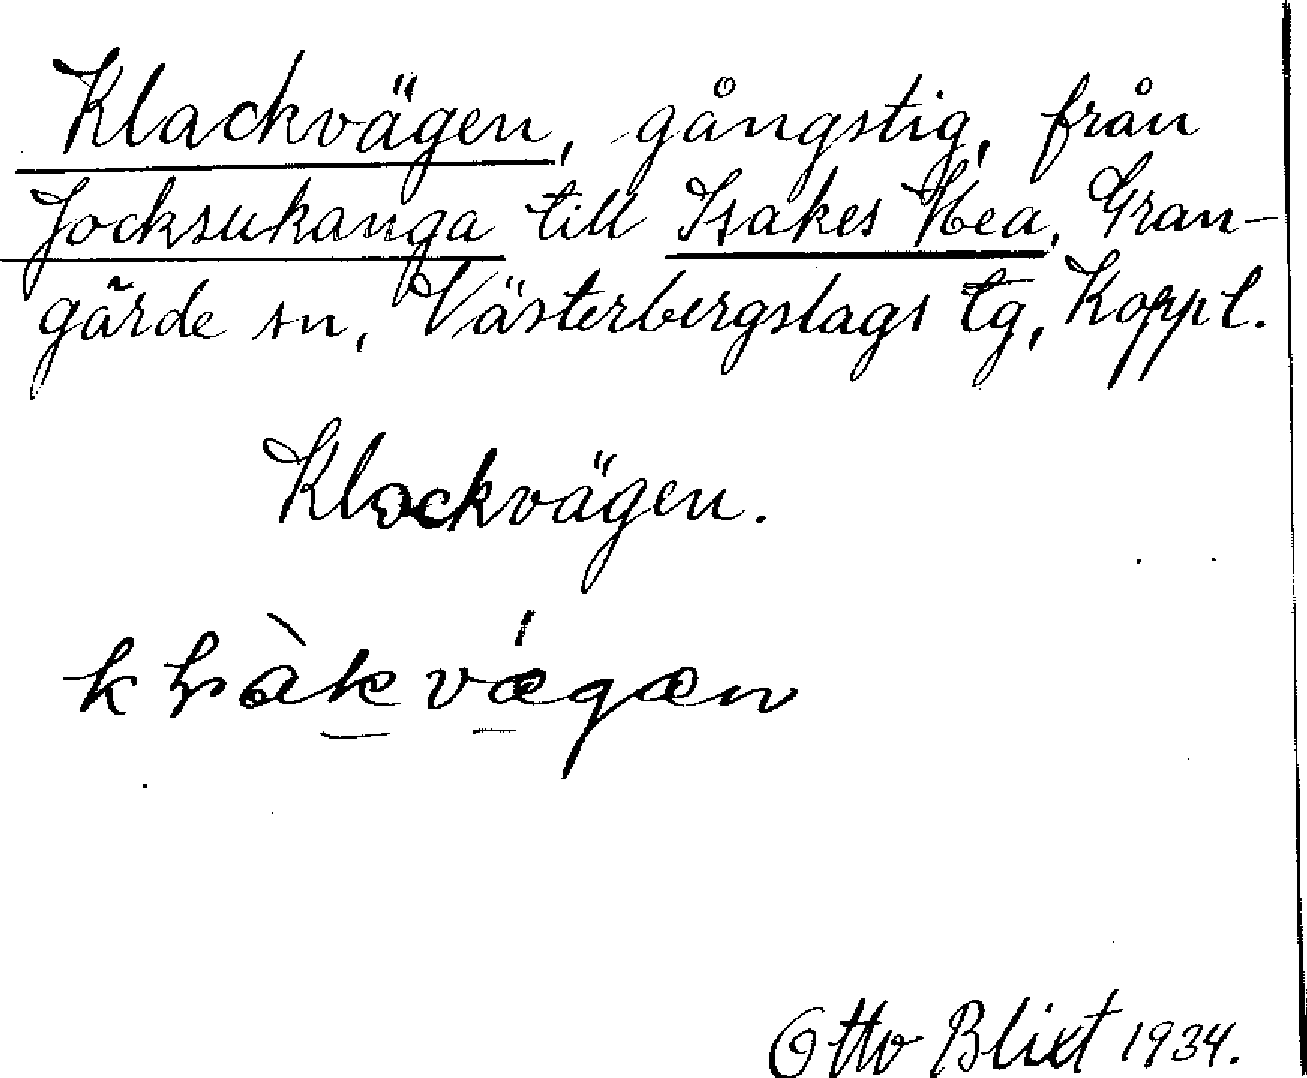 Klackvägen, gångstig, från
Jocksukanga till Isakes Hea, Gran-
gärde sn, Västerbergslags tg, Koppl.
Klackvägen.
Otto Blixt 1934.